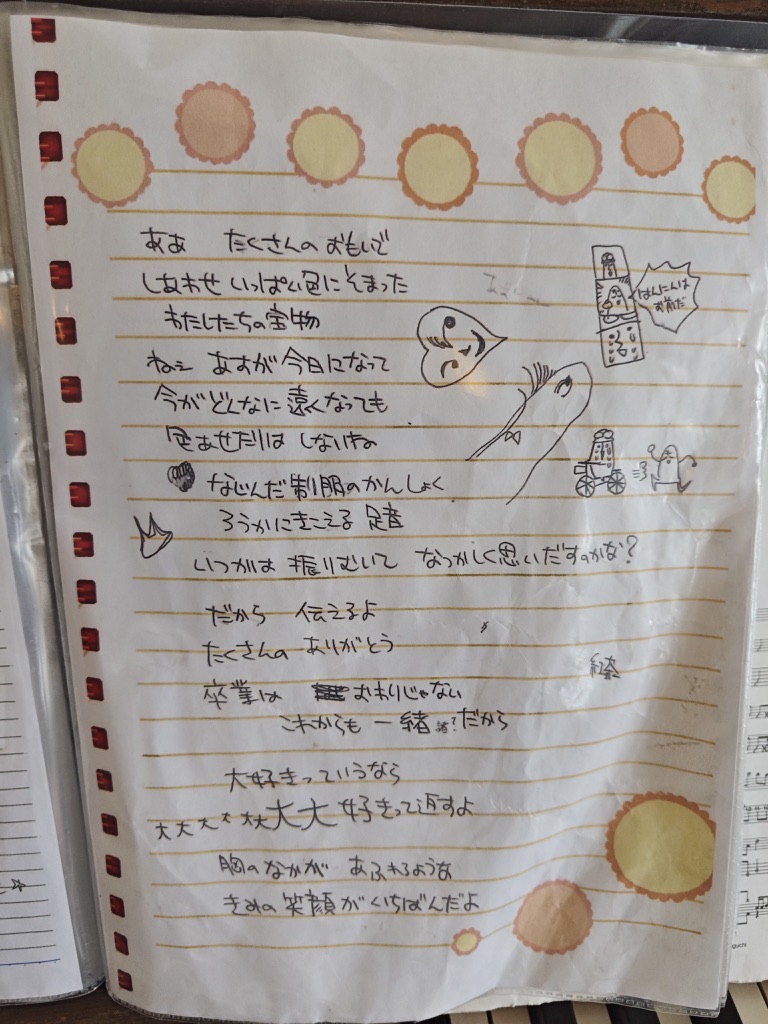 ああ たくさんの おもいで
しあわせ いっぱい色に そまった
わたしたちの宝物
はんにんは
お前だ
ねぇ あすが 今日になって
今がどんなに 遠くなっても
色あせたりは しないね
なじんだ 制服のかんしょく
ろうかにきこえる 足音
いつかは 振りむいて なつかしく思いだすのかな?
だから 伝えるよ
たくさんの ありがとう
紅茶
卒業は おわりじゃない
これからも 一緒 緒? だから
大好きっていうなら
大大大大大大大大好きって返すよ
胸のなかが あふれるような
きみの 笑顔が いちばんだよ